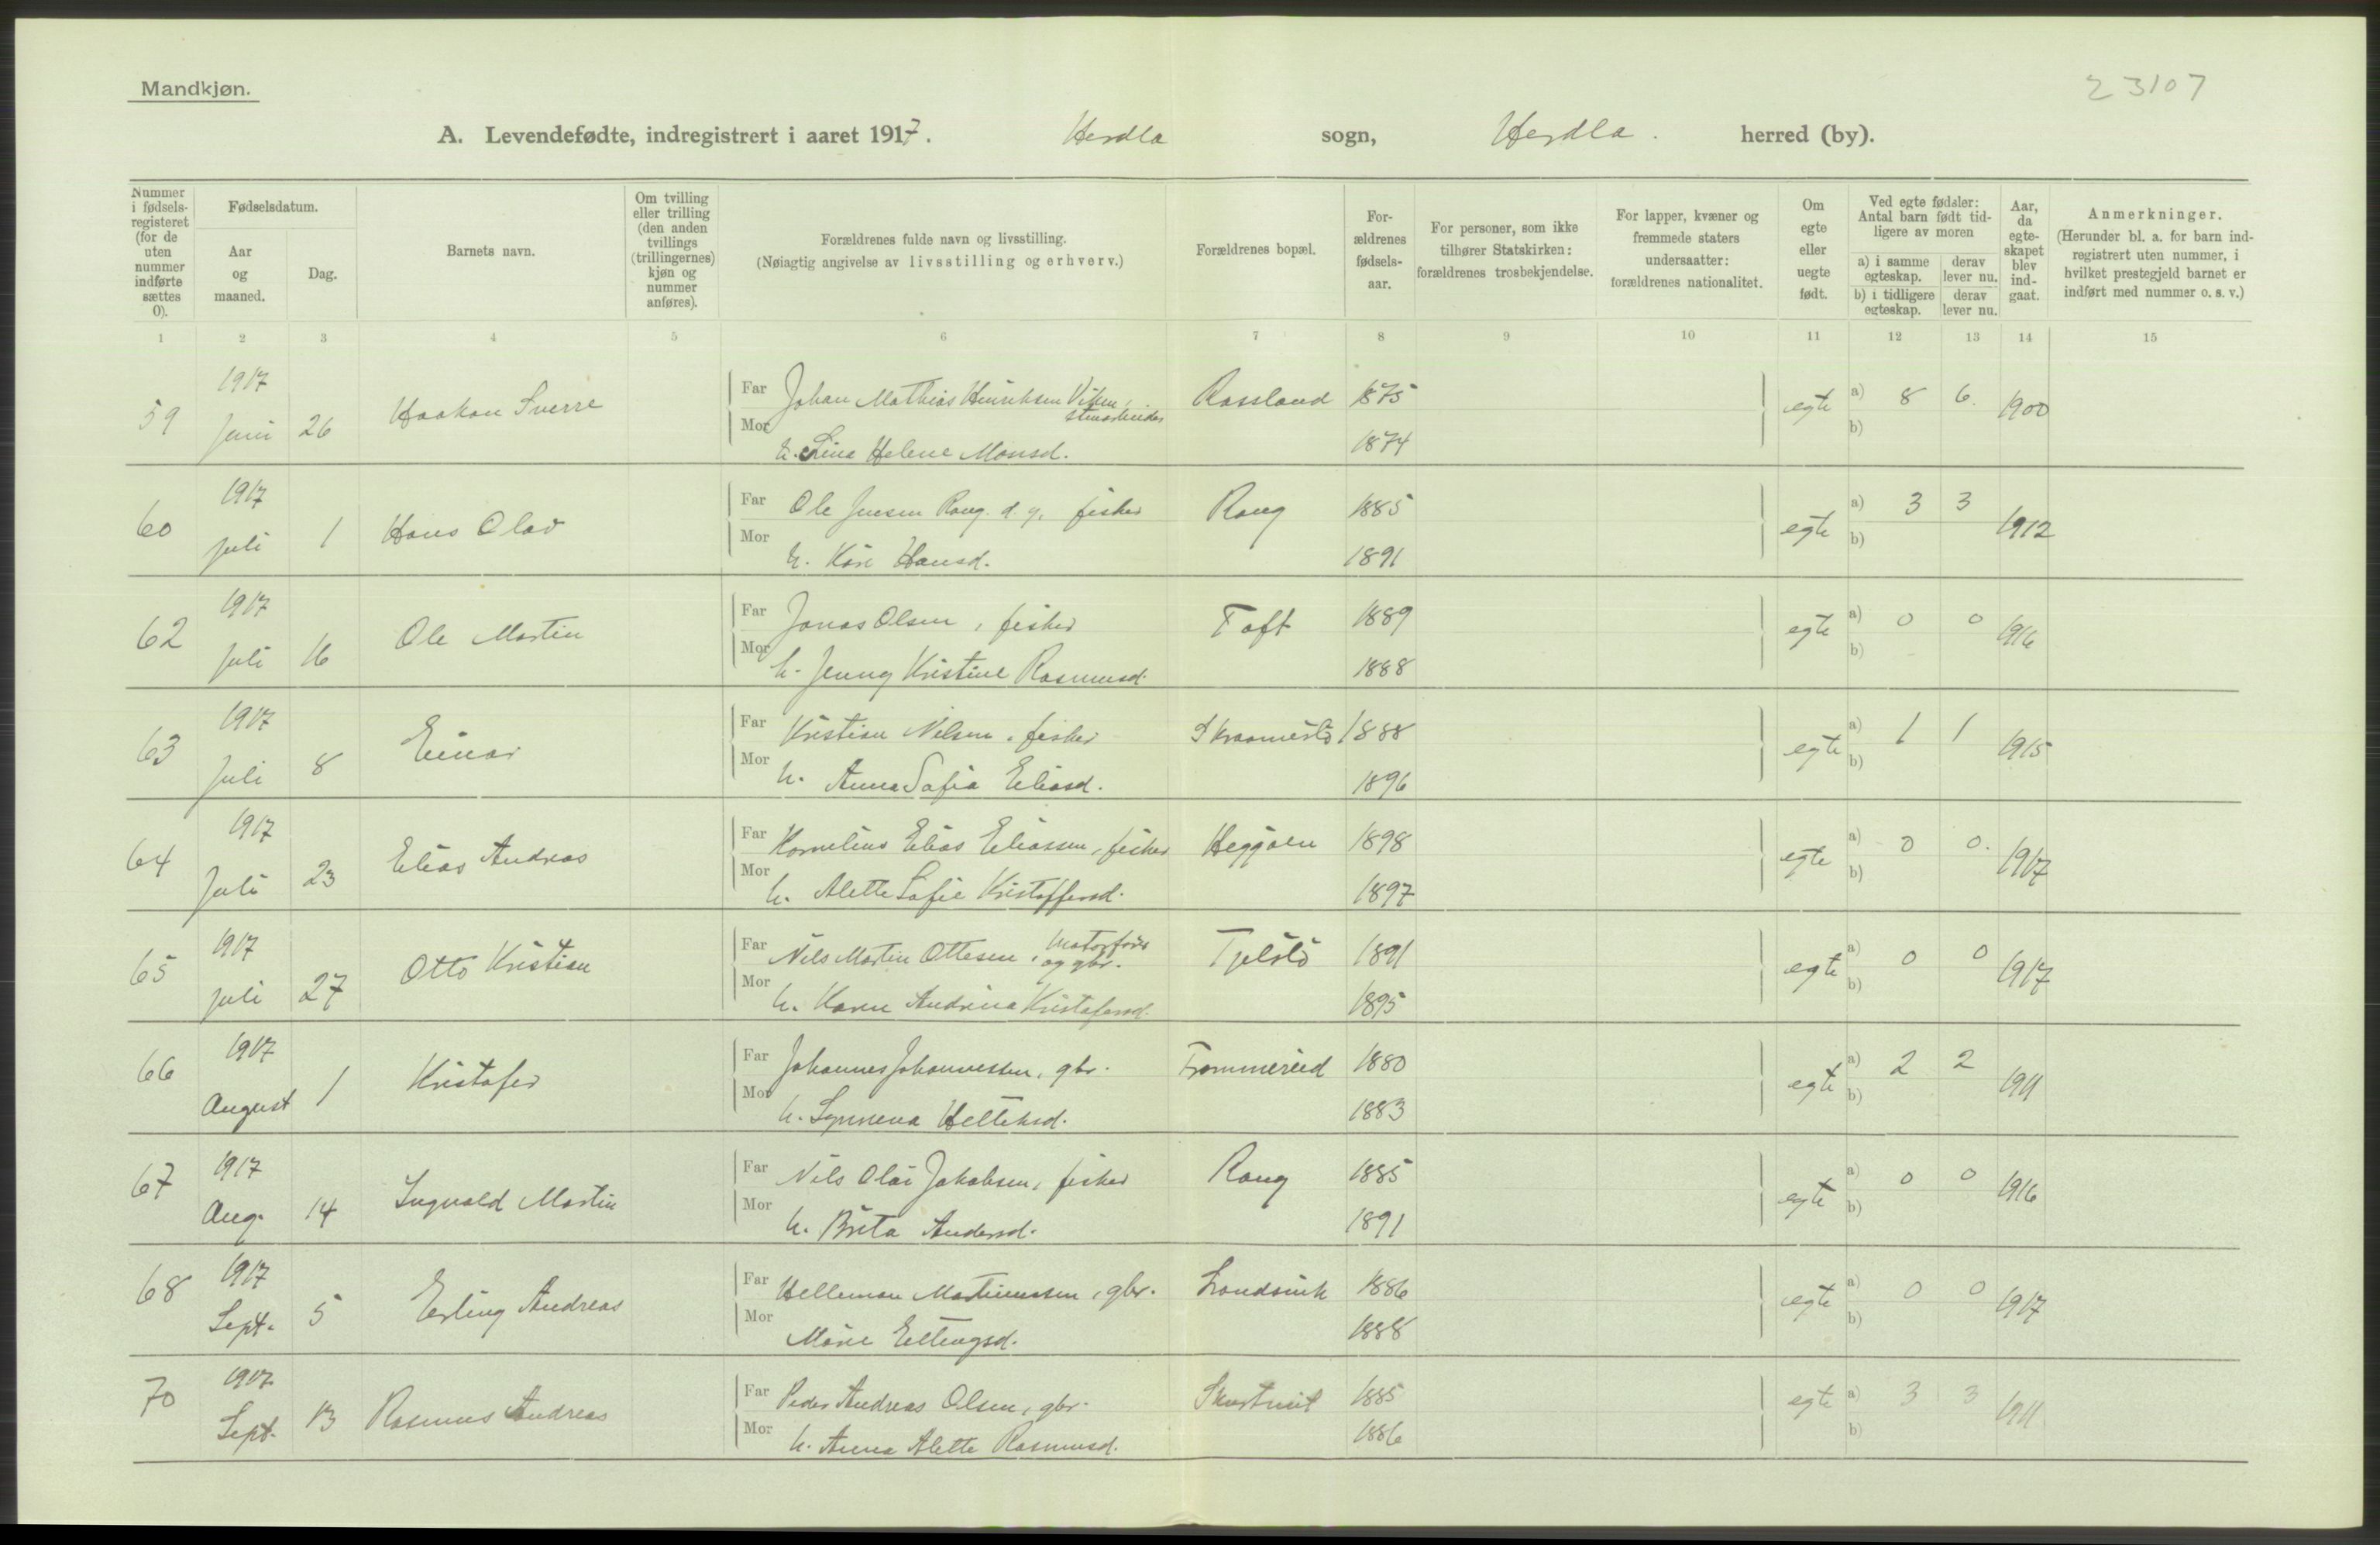 Mandkjøn.
23107
A. Levendefødte, indregistrert i aaret 1917. Herdla sogn, Herdla. herred (by).
Nummer i fødselsregisteret (for de uten nummer indførte sættes 0).
Fødselsdatum.
Aar og maaned.
Dag.
Barnets navn.
Om tvilling eller trilling (den anden tvillings (trillingernes) kjøn og nummer anføres).
Forældrenes fulde navn og livsstilling.
(Nøiagtig angivelse av livsstilling og erhverv.)
Forældrenes bopæl.
For-ældrenes fødsels-aar.
For personer, som ikke tilhører Statskirken: forældrenes trosbekjendelse.
For lapper, kvæner og fremmede staters undersaatter: forældrenes nationalitet.
Om egte eller uegte født.
Ved egte fødsler: Antal barn født tid-ligere av moren
a) i samme egteskap. derav lever nu.
b) i tidligere egteskap. derav lever nu.
Aar, da egte-skapet blev ind-gaat.
Anmerkninger.
(Herunder bl. a. for barn ind-registrert uten nummer, i hvilket prestegjeld barnet er indført med nummer o. s. v.)
1 2 3 4 5 6 7 8 9 10 11 12 13 14 15
59 1917 Juni 26 Haakon Sverre Far Johan Mathias Henriksen Viken, stenarbeider Rossland 1875 egte a) 8 6. 1900
Mor h. Lina Helene Monsd. 1874 b)
60 1917 Juli 1 Hans Olav Far Ole Jensen Rong d. y. fisker Rong 1885 egte a) 3 3 1912
Mor h. Kari Hansd. 1891 b)
62 1917 Juli 16 Ole Martin Far Jonas Olsen, fisker Toft 1889 egte a) 0 0 1916
Mor h. Jenny Kristine Rasmusd. 1888 b)
63 1917 Juli 8 Einar Far Kristian Nilsen, fisker 1888 egte a) 1 1 1915
Mor h. Anna Sofia Eliasd. 1896 b)
64 1917 Juli 23 Elias Andreas Far Kornelius Elias Eliassen, fisker Heggøen 1898 egte a) 0 0. 1917
Mor h. Alette Sofie Kristoffersd. 1897 b)
65 1917 Juli 27 Otto Kristian Far Nils Martin Ottesen, motorfører og gbr. Tjeldstø 1891 egte a) 0 0 1917
Mor h. Karen Andrina Kristofersd. 1895 b)
66 1917 August 1 Kristofer Far Johannes Johannessen, gbr. Frommereid 1880 egte a) 2 2 1911
Mor h. Synneva Helleksd. 1883 b)
67 1917 Aug. 14 Ingvald Martin Far Nils Olai Jakobsen, fisker Rong 1885 egte a) 0 0 1916
Mor h. Brita Andersd. 1891 b)
68 1917 Sept. 5 Erling Andreas Far Helleman Martinussen, gbr. Landsvik 1886 egte a) 0 0 1917
Mor Marie Ellingsd. 1888 b)
70 1917 Sept. 13 Rasmus Andreas Far Peder Andreas Olsen, gbr. 1885 egte a) 3 3 1911
Mor h. Anna Alette Rasmusd. 1886 b)